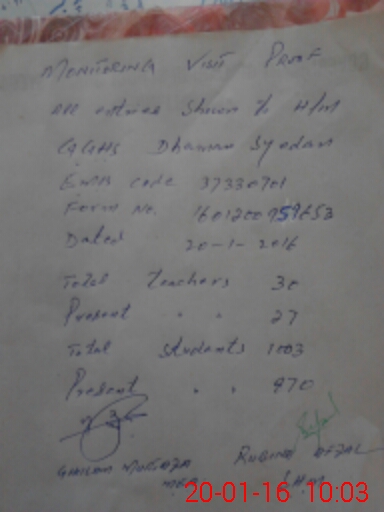 MONITORING VISIT PROOF
All entries shown to H/M
GGHS Dhaman Syedan
EMIS code 37330701
Form No. 1601200959653
Dated 20-1-2016
Total teachers 30
Present " " 27
Total students 1003
Present " " 970
GHULAM MURTAZA RUBINA AFZAL
MEA S/HM
20-01-16 10:03